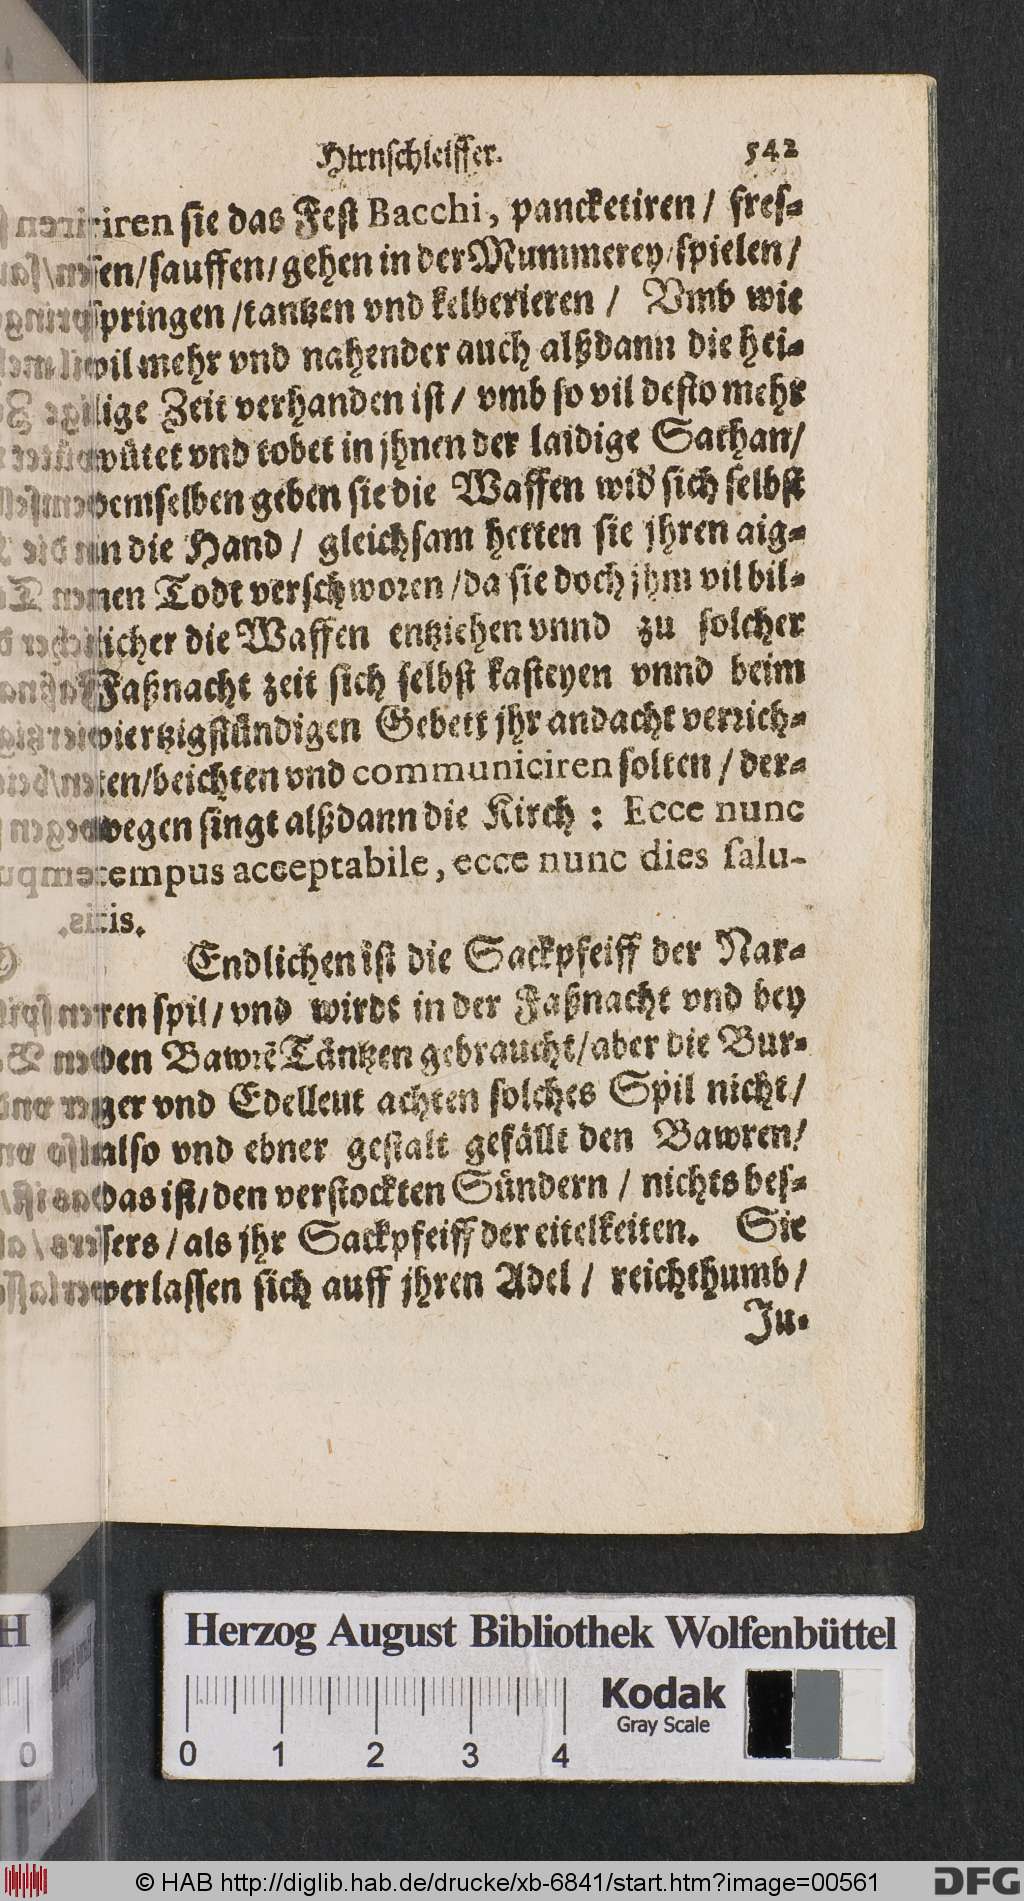 Hirnschleiffer. 542
riren sie das Fest Bacchi, pancketiren / fres-
sen/sauffen/gehen in der Mummerey/spielen/
springen /tantzen vnd kelberieren / Vmb wie
vil mehr vnd nahender auch alßdann die hei-
lige Zeit verhanden ist / vmb so vil desto mehr
wütet vnd tobet in jhnen der laidige Sathan/
demselben geben sie die Waffen wid̕ sich selbst
in die Hand / gleichsam hetten sie jhren aig-
nen Todt verschworen /da sie doch jhm vil bil-
licher die Waffen entziehen vnnd zu solcher
Faßnacht zeit sich selbst kasteyen vnnd beim
viertzigstündigen Gebett jhr andacht verrich-
ten/beichten vnd communiciren solten / der-
wegen singt alßdann die Kirch : Ecce nunc
tempus acceptabile, ecce nunc dies salu-
tis.
Endlichen ist die Sackpfeiff der Nar-
ren spil/ vnd wirdt in der Faßnacht vnd bey
den Bawrē Täntzen gebraucht/aber die Bur-
ger vnd Edelleut achten solches Spil nicht/
also vnd ebner gestalt gefällt den Bawren/
das ist/den verstockten Sündern / nichts bes-
sers / als jhr Sackpfeiff der eitelkeiten. Sie
verlassen sich auff jhren Adel / reichthumb/
Ju-
Herzog August Bibliothek Wolfenbüttel
Kodak
Gray Scale
0 1 2 3 4
H
0
© HAB http://diglib.hab.de/drucke/xb-6841/start.htm?image=00561
DFG